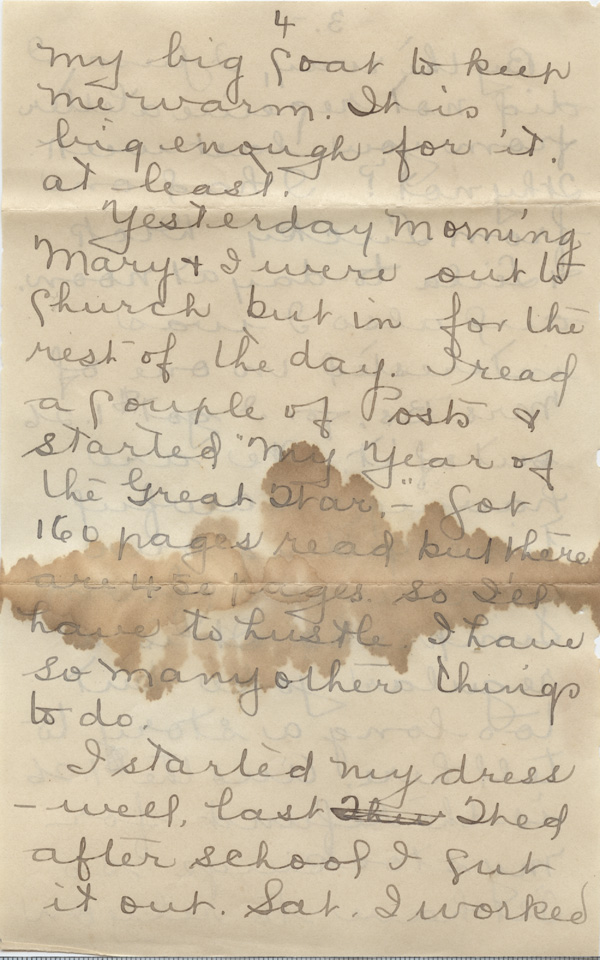 4
my big coat to keep
me warm. It is
big enough for it.
at least.
Yesterday morning
Mary & I were out to
church but in for the
rest of the day. I read
a couple of Posts &
started "My Year of
the Great War." - Got
160 pages read but there
are 450 pages. so I'll
have to hustle. I have
so many other things
to do.
I started my dress
- well, last Thu Wed
after school I cut
it out. Sat. I worked